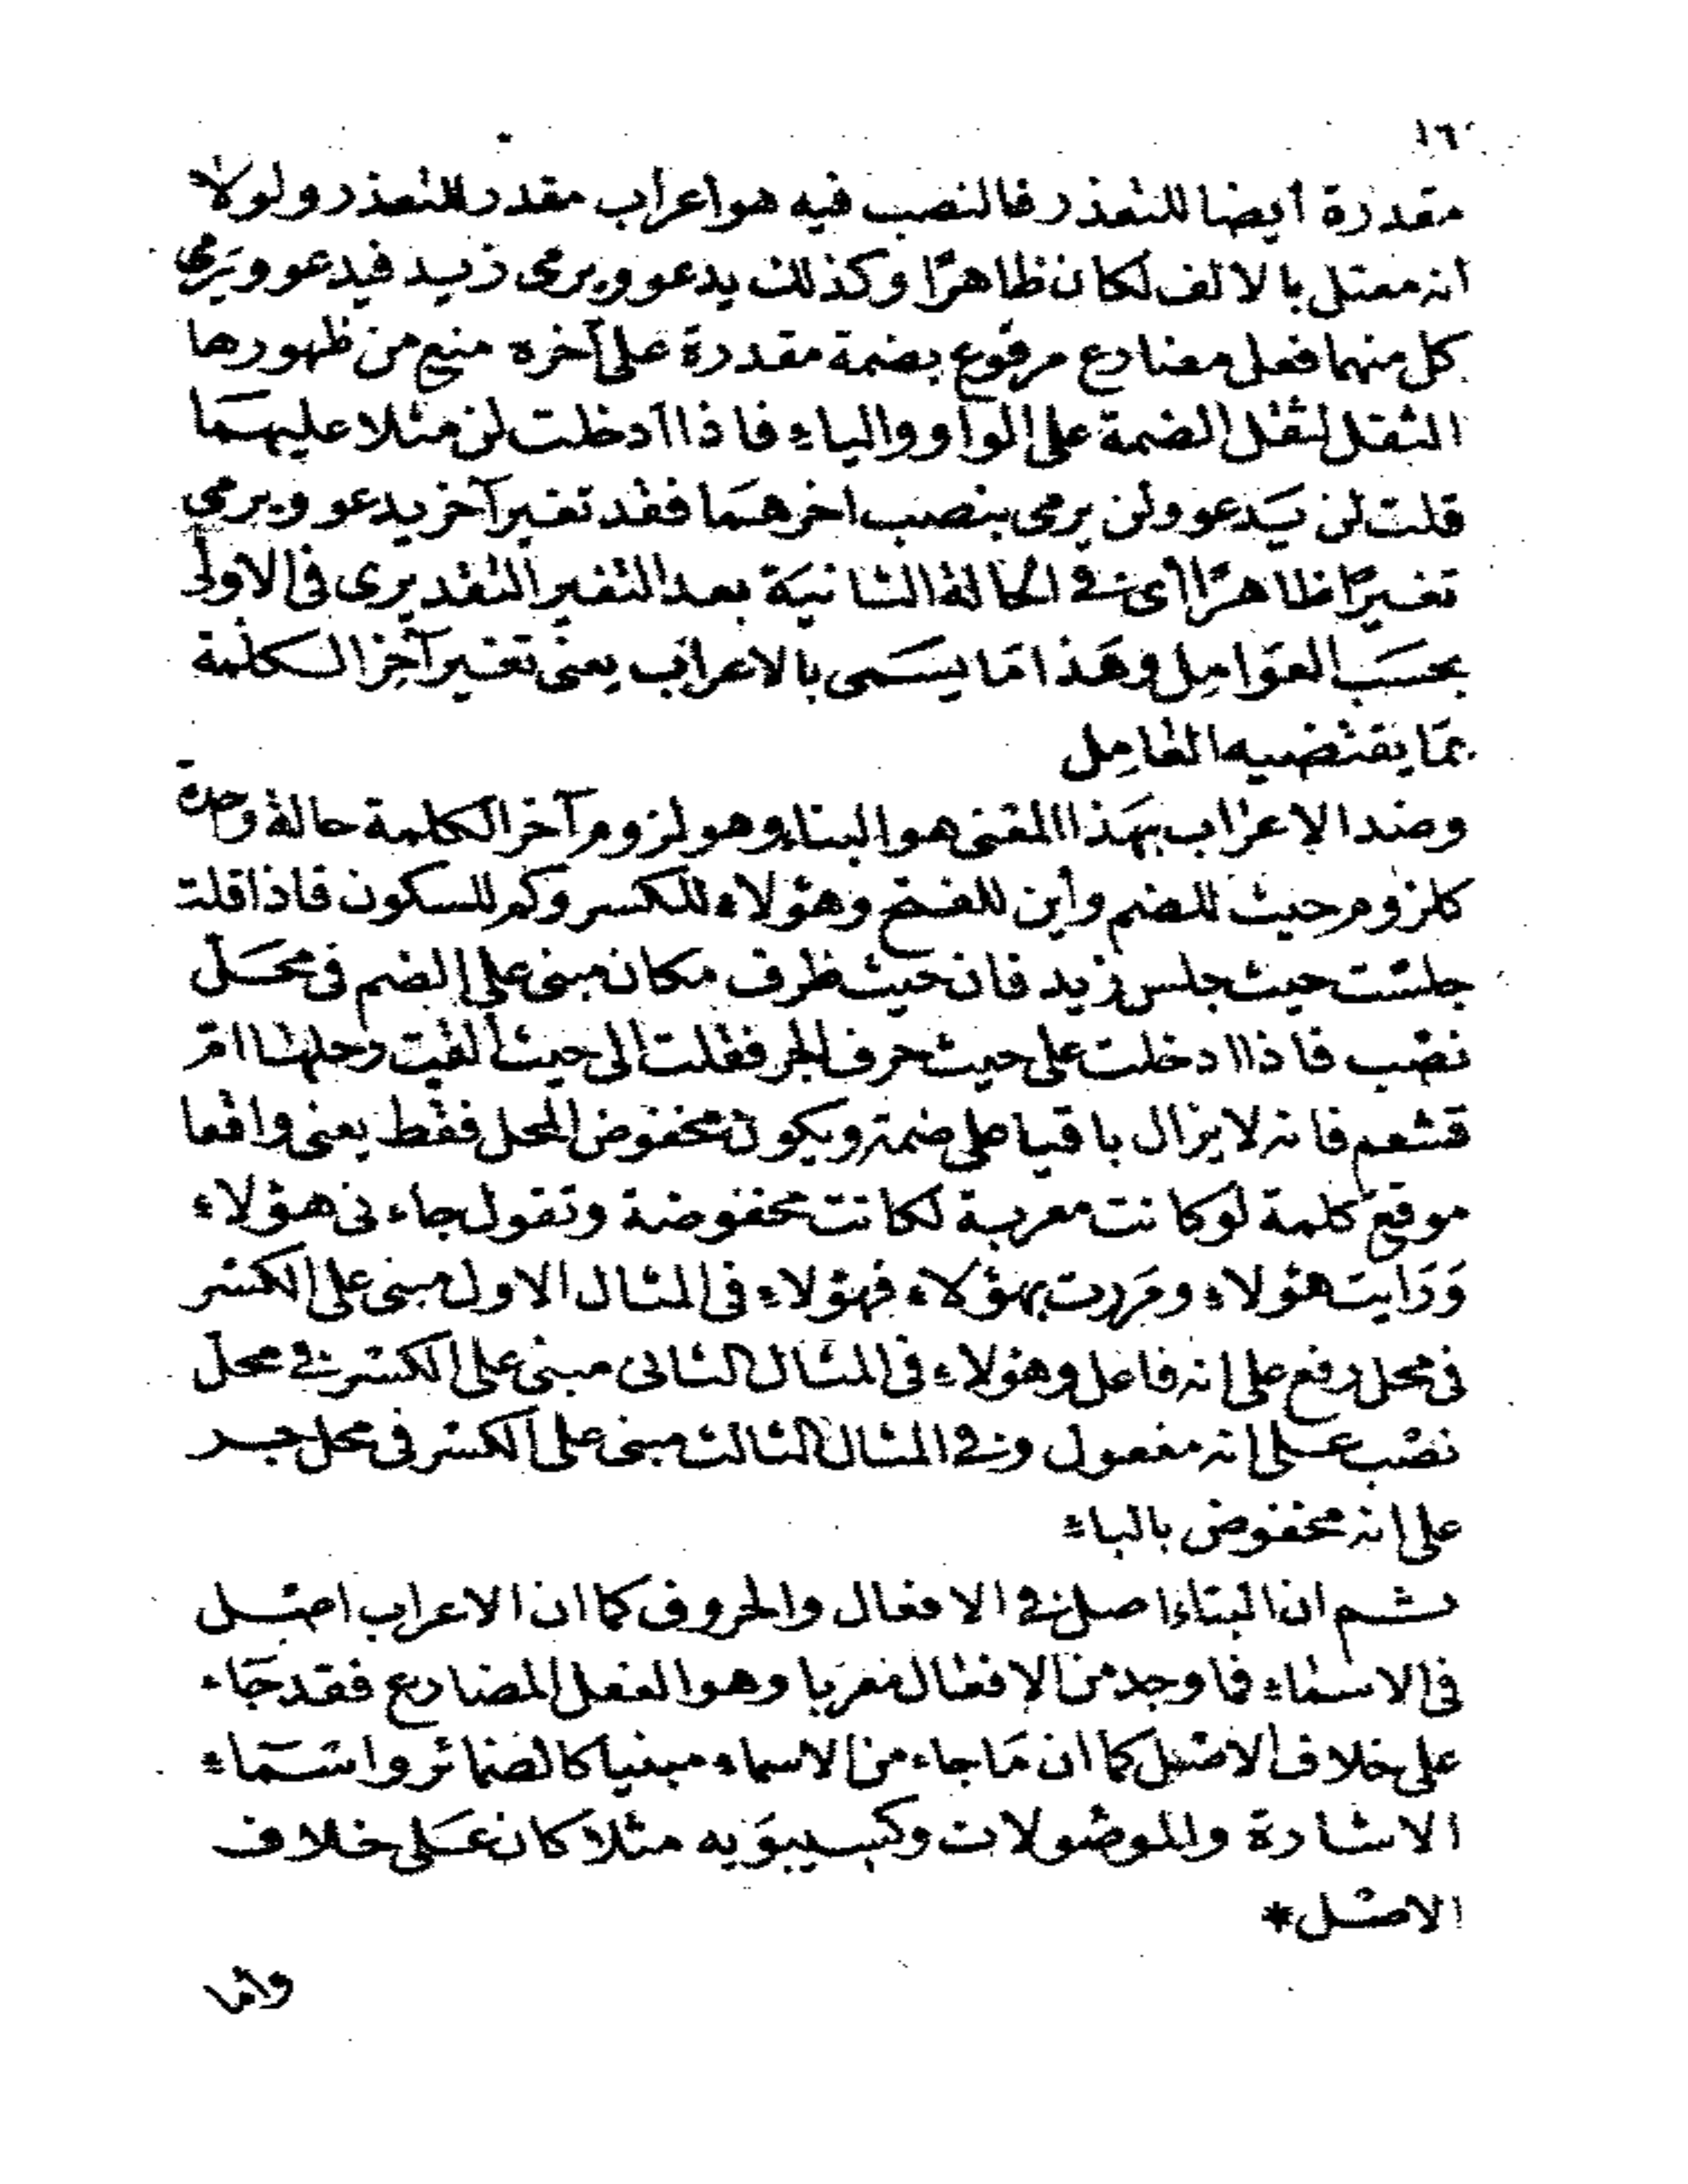 ١٦
مقدرة أيضا للتعذر فالنصب فيه هو اعراب مقدر للتعذر ولولا
انه معتل بالالف لكان ظاهرًا وكذلك يدعو ويرمى زيد فيدعو ويَرمى
كل منهما فعل مضارع مرفوع بضمة مقدرة على آخره منع من ظهورها
الثقل لثقل الضمة على الواو والياء فاذا أدخلت لن مثلا عليهما
قلت لن يَدعو ولن يرمى بنصب اخرهما فقد تغير آخر يدعو ويرمى
تغيرًا ظاهرًا أى فى الحالة الثانية بعد التغير التقديرى فى الاولى
بحسَب العوَامِل وهَذا مَا يسَمى بالاعراب يعنى تغير آخِر الكلمة
بمَا يقتضيه العَامِل
وضد الاعراب بهَذا المعنى هو البناء وهو لزوم آخر الكلمة حالة وحدة
كلزوم حيث للضم وأين للفتح وهؤلاء للكسر وكم للسكون فاذا قلت
جلست حيث جلس زيد فان حيث ظرف مكان مبنى على الضم فى محَل
نصب فاذا ادخلت على حيث حرف الجر فقلت الى حيث ألقت رحلها امّ
قشعم فانه لا يزال باقيا على ضمته ويكون مخفوض المحل فقط يعنى واقعا
موقع كلمة لو كانت معربة لكانت مخفوضة وتقول جاءنى هؤلاء
وَرَايت هؤلاء ومَررت بهؤلاء فهؤلاء فى المثال الاول مبنى على الكسر
فى محل رفع على انه فاعل وهؤلاء فى المثال الثانى مبنى على الكسر فى محل
نصب على انه مفعول وفى المثال الثالث مبنى على الكسر فى محل جر
على انه مخفوض بالباء
ثم ان البناء اصل فى الافعال والحروف كما ان الاعراب اصل
فى الاسماء فما وجد من الافعال معربا وهو الفعل المضارع فقد جَاء
على خلاف الاصل كما ان مَا جاء من الاسماء مبنيا كالضمائر واسمَاء
الاشارة والموصولات وكسيبوَيه مثلا كان عَلى خلاف
الاصل *
واما